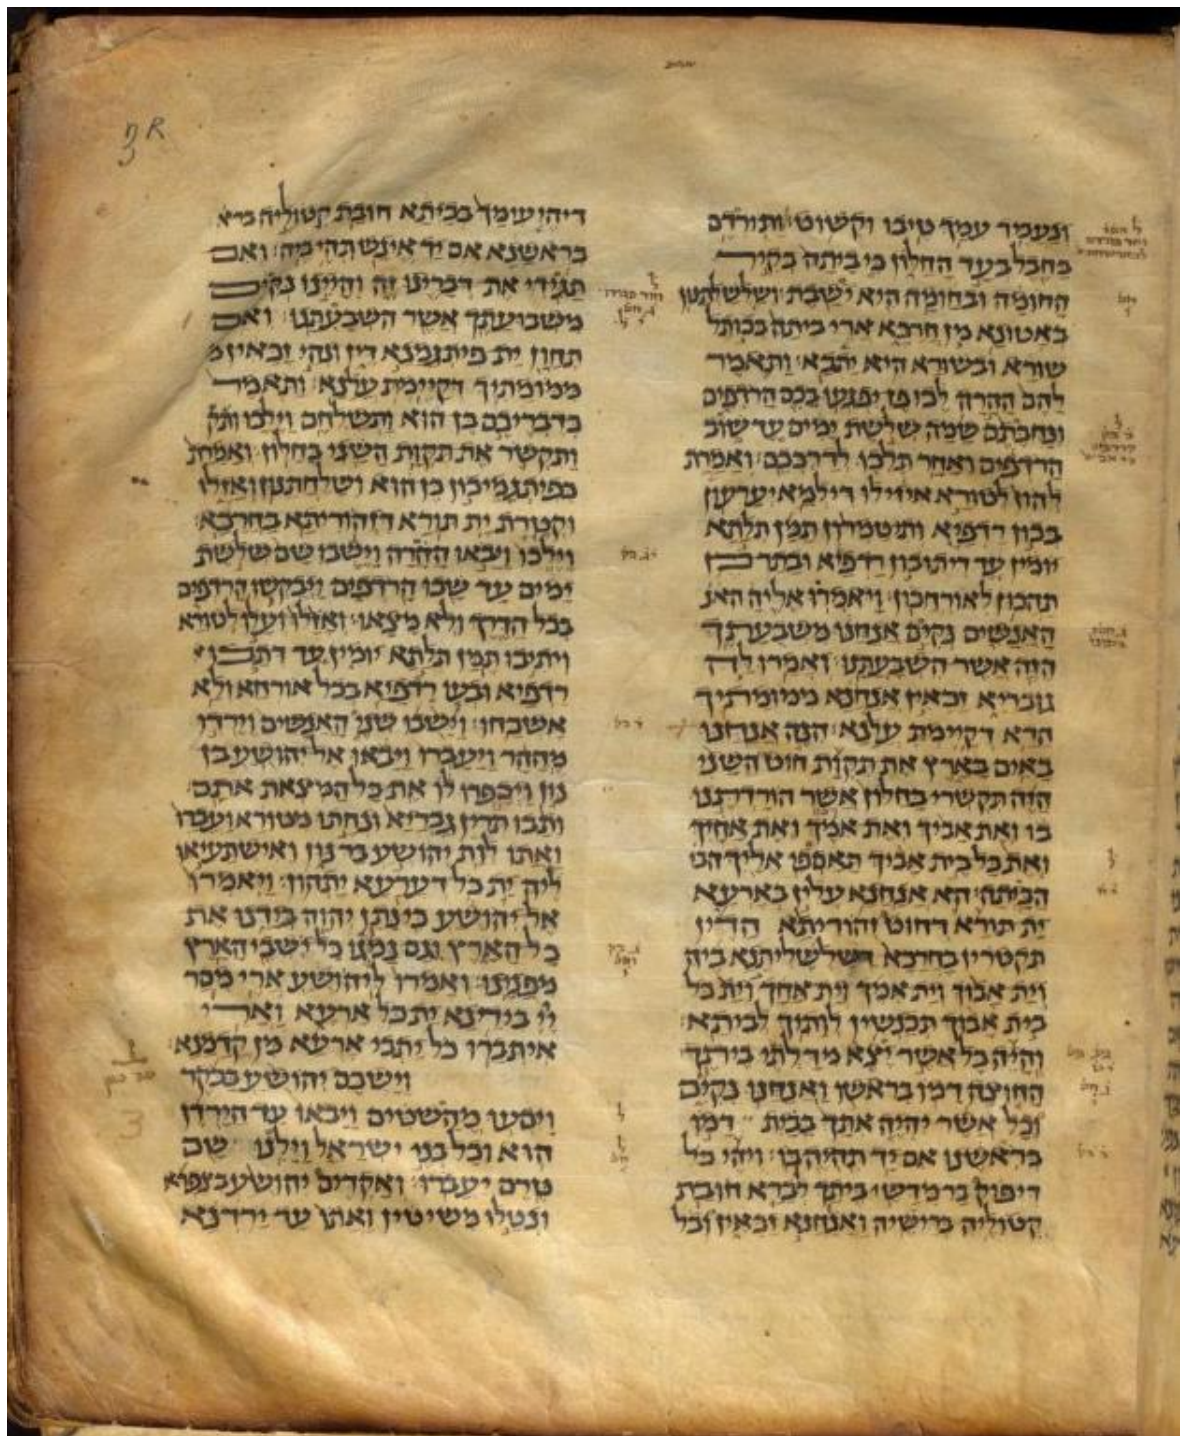 ונעמיד עמך טיבו וקשוט ותורדם
בחבל בעד החלון כי ביתה בקיר
החומה ובחומה היא יושבת ושלשלתנון
באטונא מן חרכא ארי ביתה בכותל
שורא ובשורא היא יתבא ותאמר
להם ההרה לכו פן יפגעו בכם הרדפים
ונחבתם שמה שלשת ימים עד שוב
הרדפים ואחר תלכו לדרככם ואמרת
להון לטורא איזילו דילמא יערעון
בכון רדפיא ותיטמרון תמן תלתא
יומין עד דיתובון רדפיא ובתר כן
תהכון לאורחכון ויאמרו אליה האנ
האנשים נקים אנחנו משבעתך
הזה אשר השבעתנו ואמרו לה
גובריא זכאין אנחנא ממומתיך
הדא דקיימת עלנא הנה אנחנו
באים בארץ את תקות חוט השני
הזה תקשרי בחלון אשר הורדתנו
בו ואת אביך ואת אמך ואת אחיך
ואת כל בית אביך תאספי אליך הבי
הביתה הא אנחנא עלין בארעא
ית תורא דחוט זהוריתא הדין
תקטרין בחרכא דשלשליתנא ביה
וית אבוך וית אמך וית אחך וית כל
בית אבוך תכנשין לותיך לביתא
והיה כל אשר יצא מדלתי ביתך
החוצה דמו בראשו ואנחנו נקים
וכל אשר יהיה אתך בבית דמו
בראשנו אם יד תהיה בו ויהי כל
דיפוק מדשי ביתך לברא חובת
קטוליה ברישיה ואנחנא זכאין וכל
דיהי עומך בביתא חובת קטוליה
בראשנא אם יד אינש תהי ביה ואם
תגידי את דברינו זה והיינו נקים
משבועתך אשר השבעתנו ואם
תחון ית פיתגמנא דין ונהי זכאין מ
ממומתיך דקיימת עלנא ותאמר
כדבריכם כן הוא ותשלחם וילכו ותק
ותקשר את תקות השני בחלון ואמרת
כפיתגמיכון כן הוא ושלחתנון ואזלו
וקטרת ית תורא דזהוריתא בחרכא
וילכו ויבאו ההרה וישבו שם שלשת
ימים עד שבו הרדפים ויבקשו הרדפים
בכל הדרך ולא מצאו ואזלו ועלו לטורא
ויתיבו תמן תלתא יומין עד דתבו
רדפיא ובעו רדפיא בכל אורחא ולא
אשכחו וישבו שני האנשים וירדו
מההר ויעברו ויבאו אל יהושע בן
נון ויספרו לו את כל המצאות אתם
ותבו תרין גבריא ונחתו מטורא ועברו
ואתו לות יהושע בר נון ואישתעיאו
ליה ית כל דערעא יתהון ויאמרו
אל יהושע כי נתן יהוה בידנו את
כל הארץ וגם נמגו כל ישבי הארץ
מפנינו ואמרו ליהושע ארי מסר
ייי בידינא ית כל ארעא ואף
איתברו כל יתבי ארעא מן קדמנא
וישכם יהושע בבקר
ויסעו מהשטים ויבאו עד הירדן
הוא וכל בני ישראל וילנו שם
טרם יעברו ואקדים יהושע בצפרא
ונטלו משיטין ואתו עד ירדנא